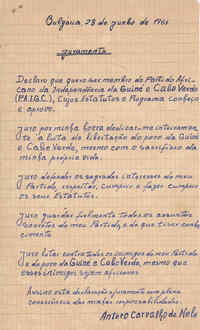 Bulgaria, 28 de junho de 1965
Juramento
Declaro que quero ser membro do Partido Afri-
cano da Independência da Guiné e Cabo Verde
(P.A.I.G.C.), cujos Estatutos e Programa conheço
e aprovo.
Juro por minha honra dedicar-me inteiramen-
te à luta de libertação do povo da Guiné
e Cabo Verde, mesmo com o sacrifício da
minha própria vida.
Juro defender os sagrados interesses do meu
Partido, respeitar, cumprir e fazer cumprir
os seus Estatutos.
Juro guardar fielmente todos os assuntos
secretos do meu Partido, de que tiver conhe-
cimento
Juro lutar contra todos os inimigos do meu Partido
e do povo da Guiné e Cabo Verde, mesmo que
esses inimigos sejam africanos.
Assino esta declaração e juramento com plena
consciência das minhas responsabilidades.
Antero Carvalho de Melo